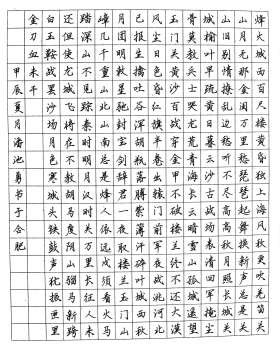 烽火城西百尺楼黄昏独上海风秋更吹羌笛关
山月无那金闺万里愁琵琶起舞换新声总是关
山旧别情撩乱边愁听不尽高高秋月照长城关
城榆叶早疏黄日暮云沙古战场表请回军掩尘
骨莫教兵士哭龙荒青海长云暗雪山孤城遥望
玉门关黄沙百战穿金甲不破楼兰终不还大漠
风尘日色昏红旗半卷出辕门前军夜战洮河北
已报生擒吐谷浑胡瓶落膊紫薄汗碎叶城西秋
月团明敕星驰封宝剑辞君一夜取楼兰玉门山
嶂几千重山北山南总是烽人依远戍须看火马
踏深山不见踪秦时明月汉时关万里长征人未
还但使龙城飞将在不教胡马度阴山骝马新跨
白玉鞍战罢沙场月色寒城头铁鼓声犹振匣里
金刀血未干
甲辰夏月潘池勇书于合肥